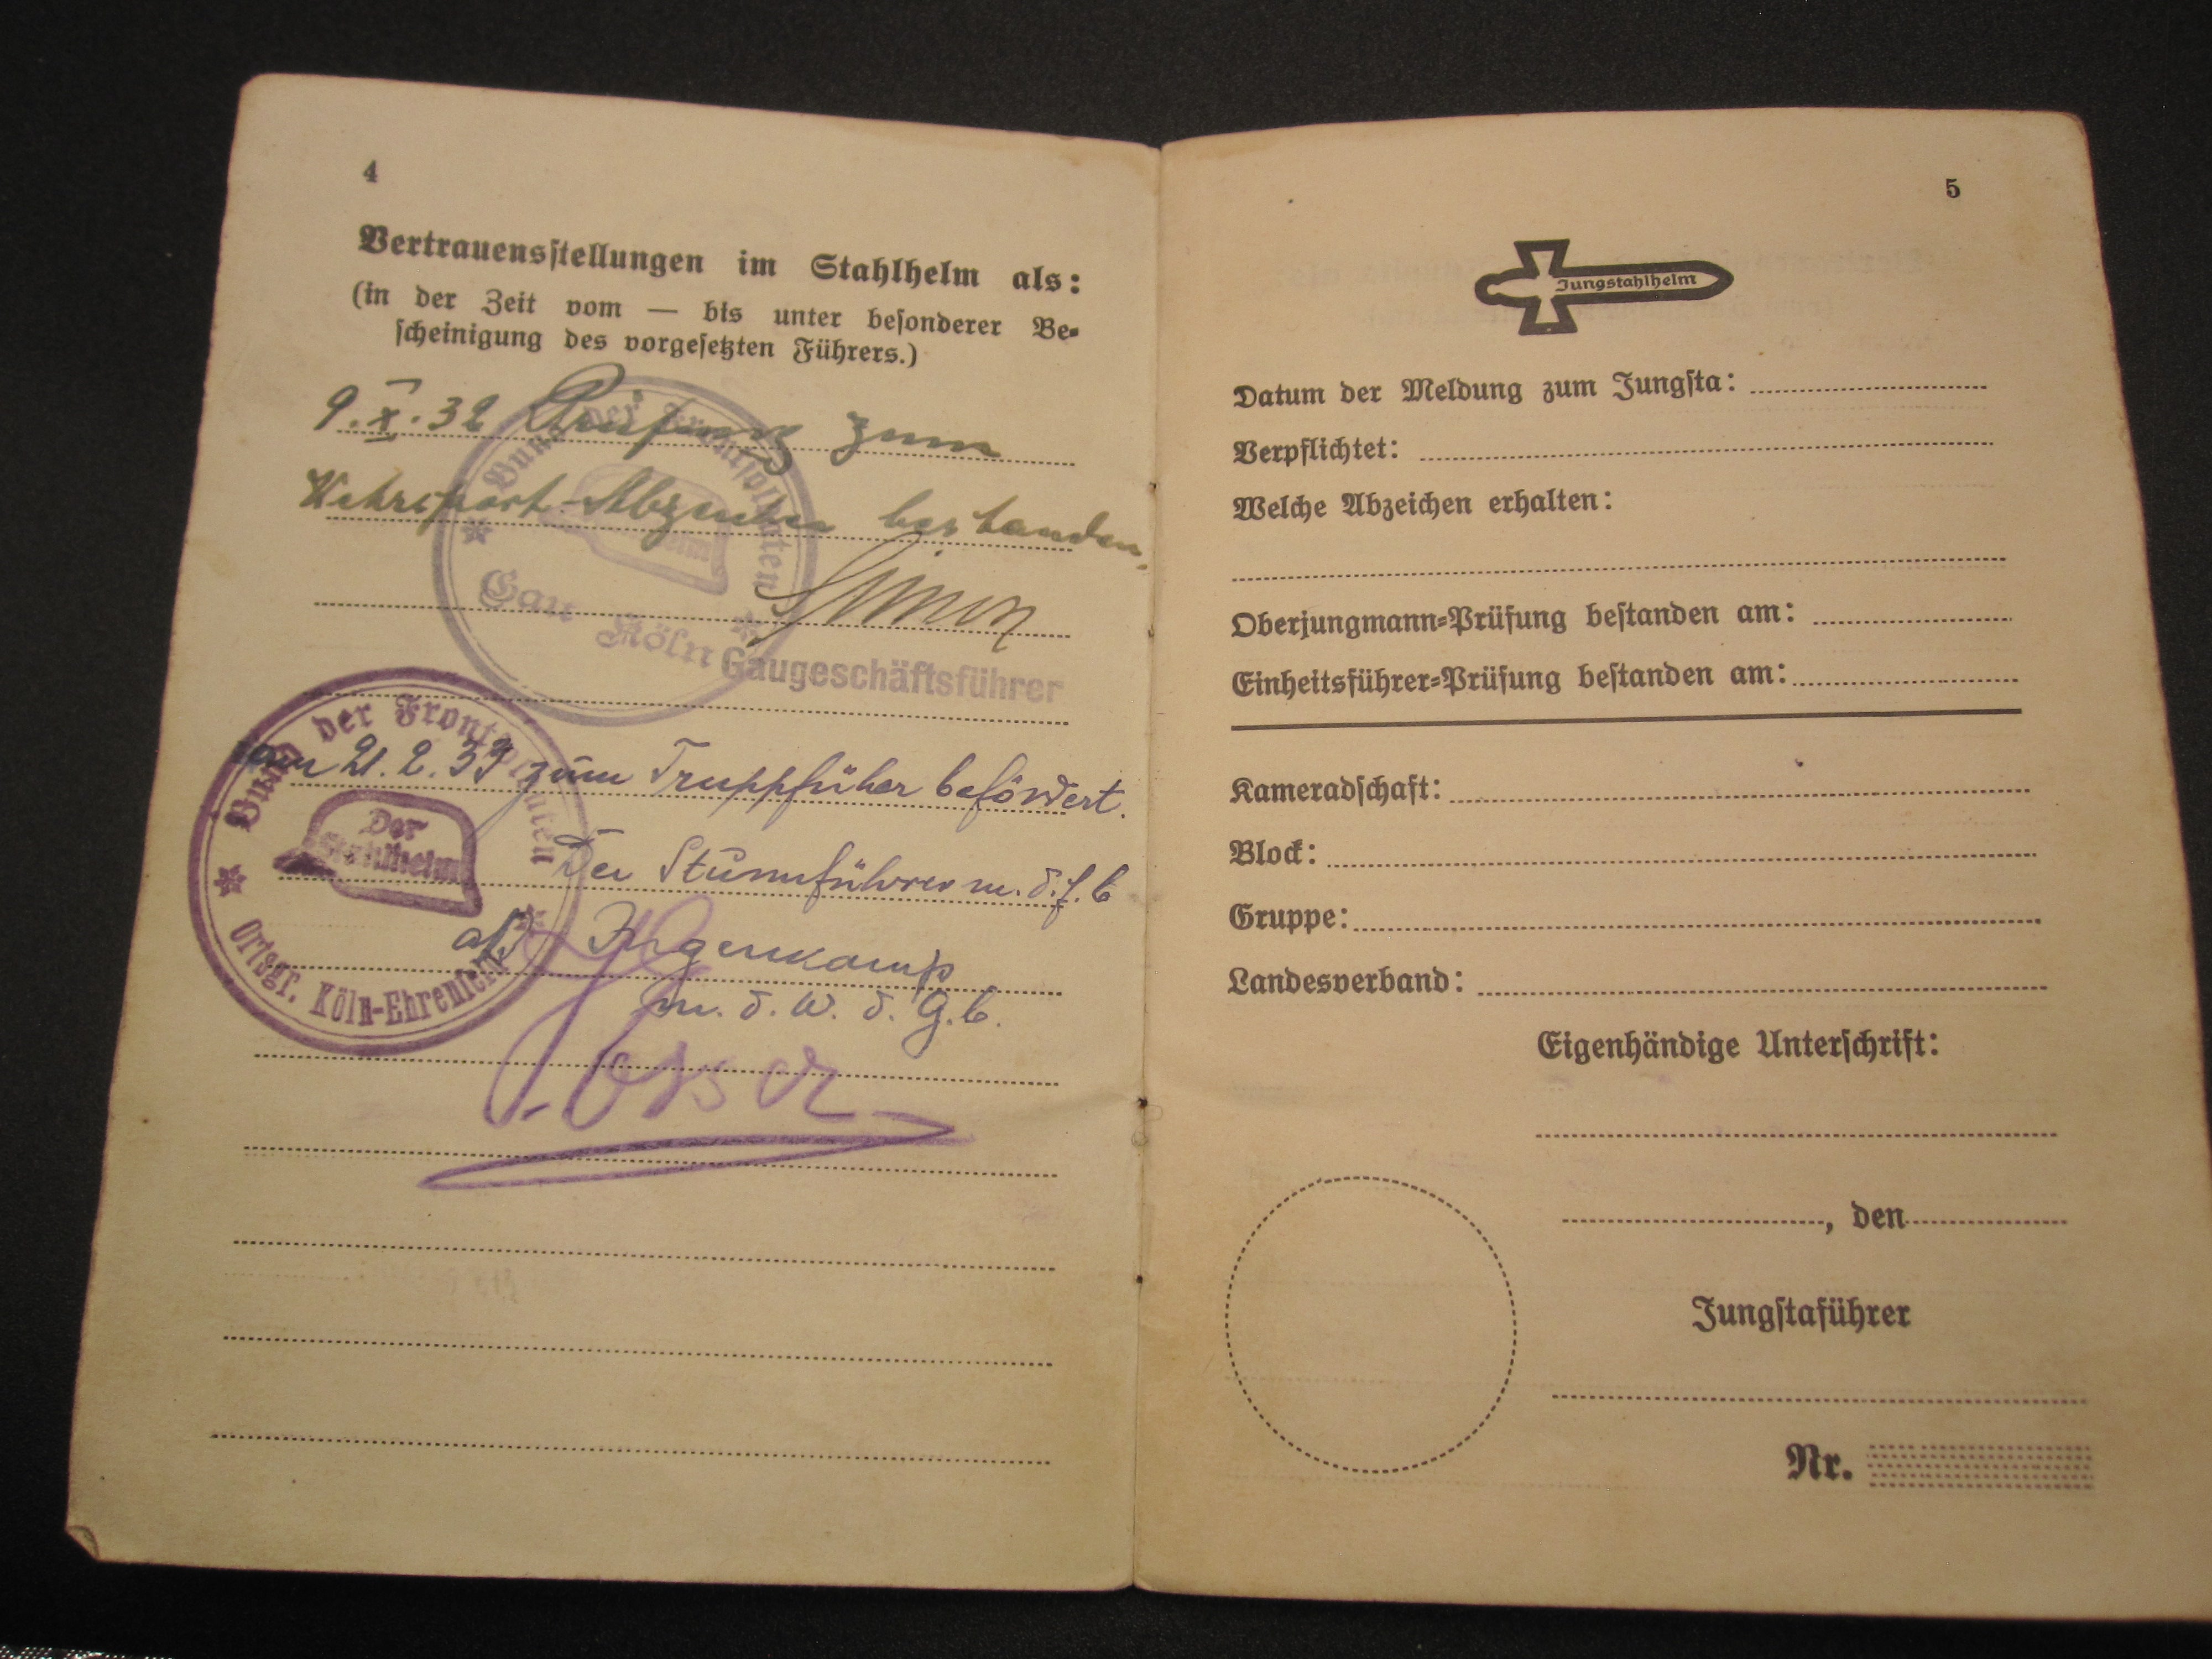 4
Vertrauensstellungen im Stahlhelm als:
(in der Zeit vom — bis unter besonderer Be-
scheinigung des vorgesetzten Führers.)
9.X.32 Prüfung zum
Wehrsport-Abzeichen bestanden.
Simon
Gaugeschäftsführer
Bund der Frontsoldaten
Gau Köln
am 21.2.33 zum Truppführer befördert.
Der Sturmführer m.d.f.b
Jugenkamp
m.d.W.d.G.b.
Bund der Frontsoldaten
Der Stahlhelm
Ortsgr. Köln-Ehrenfeld
5
Jungstahlhelm
Datum der Meldung zum Jungsta:
Verpflichtet:
Welche Abzeichen erhalten:
Oberjungmann-Prüfung bestanden am:
Einheitsführer-Prüfung bestanden am:
Kameradschaft:
Block:
Gruppe:
Landesverband:
Eigenhändige Unterschrift:
, den
Jungstaführer
Nr.